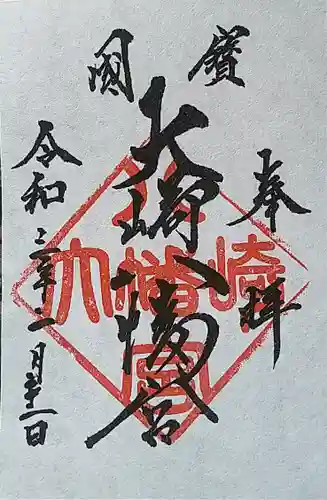 國寶
奉拝
大崎八幡宮
令和三年二月廿一日
大崎八幡宮